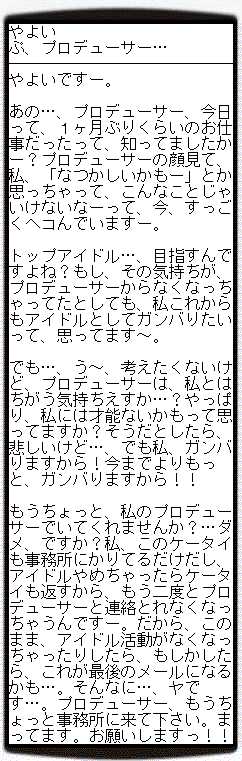 やよい
ぶ、プロデューサー…
やよいですー。
あの…、プロデューサー、今日
って、１ヶ月ぶりくらいのお仕
事だったって、知ってましたか
ー？プロデューサーの顔見て、
私、「なつかしいかもー」とか
思っちゃって、こんなことじゃ
いけないなーって、今、すっご
くヘコんでいますー。
トップアイドル…、目指すんで
すよね？もし、その気持ちが、
プロデューサーからなくなっち
ゃってたとしても、私これから
もアイドルとしてガンバりたい
って、思ってます～。
でも…、う～、考えたくないけ
ど、プロデューサーは、私とは
ちがう気持ちえすか…？やっぱ
り、私には才能ないかもって思
ってますか？そうだとしたら、
悲しいけど…、でも私、ガンバ
りますから！今までよりもっ
と、ガンバりますから！！
もうちょっと、私のプロデュー
サーでいてくれませんか？…ダ
メ、ですか？私、このケータイ
も事務所にかりてるだけだし、
アイドルやめちゃったらケータ
イも返すから、もう二度とプロ
デューサーと連絡とれなくなっ
ちゃうんですー。だから、この
まま、アイドル活動がなくなっ
ちゃったりしたら、もしかした
ら、これが最後のメールになる
かも…。そんなに…、ヤで
す…。プロデューサー、もうち
ょっと事務所に来て下さい。ま
ってます。お願いしますっ！！